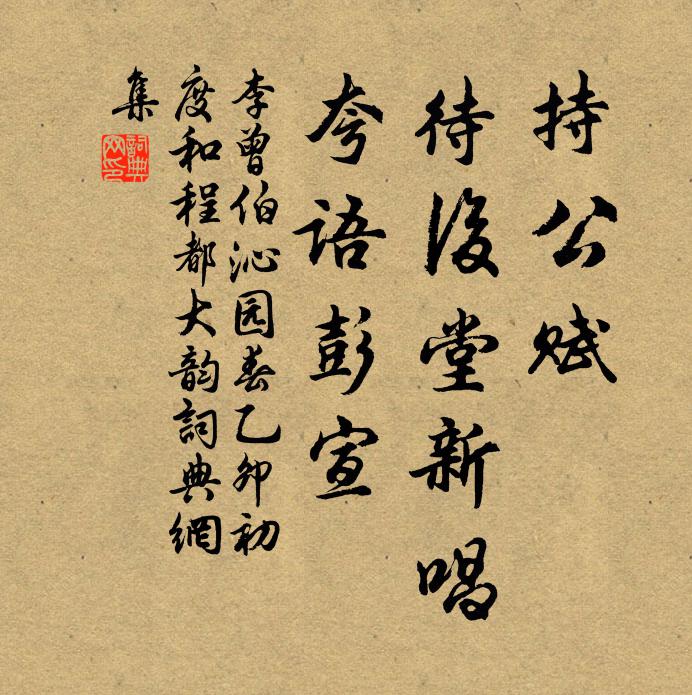 持公赋
待後堂新唱
夸语彭宣
李曾伯沁园春乙卯初
度和程都大韵詞典網
集
詞典
网印